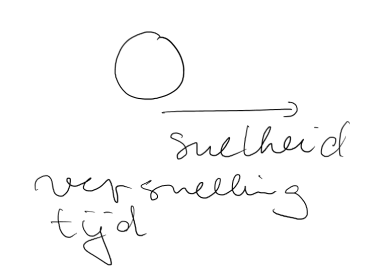 snelheid
versnelling
tijd